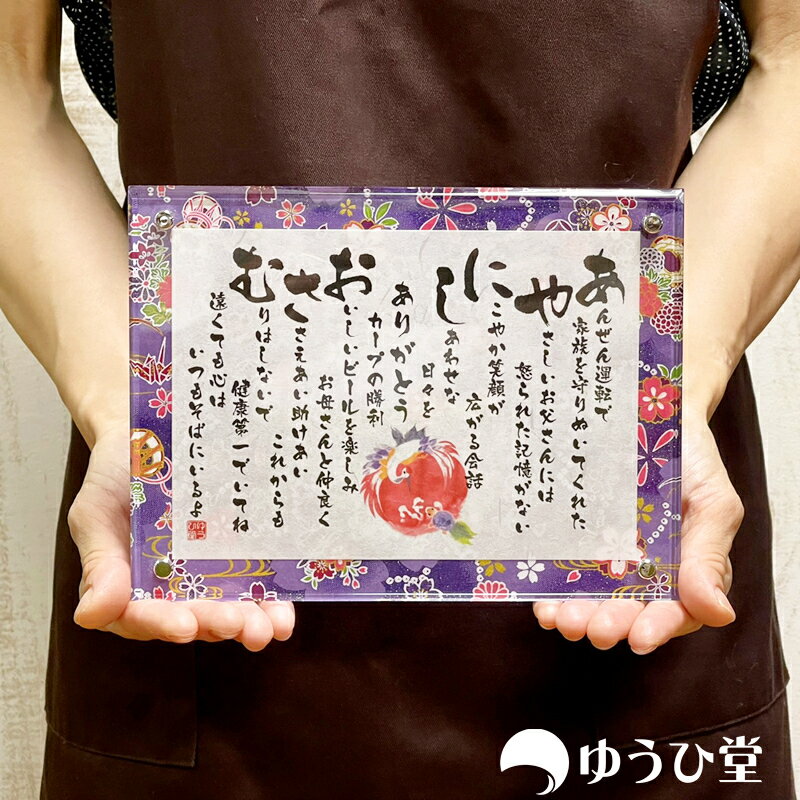 あんぜん運転で
家族を守りぬいてくれた
やさしいお父さんには
怒られた記憶がない
にこやか笑顔が
広がる会話
しあわせな
日々を
ありがとう
カープの勝利
おいしいビールを楽しみ
お母さんと仲良く
ささえあい助けあい
これからも
むりはしないで
健康第一でいてね
遠くても心は
いつもそばにいるよ
ゆうひ堂